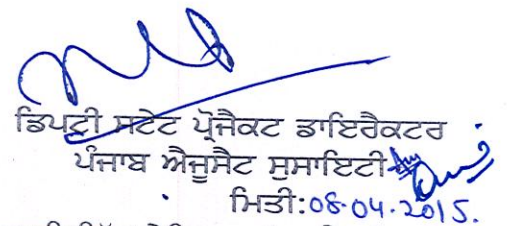 ਡਿਪਟੀ ਸਟੇਟ ਪ੍ਰੋਜੈਕਟ ਡਾਇਰੈਕਟਰ
ਪੰਜਾਬ ਐਜੂਸੈਟ ਸੁਸਾਇਟੀ
ਮਿਤੀ:08.04.2015.